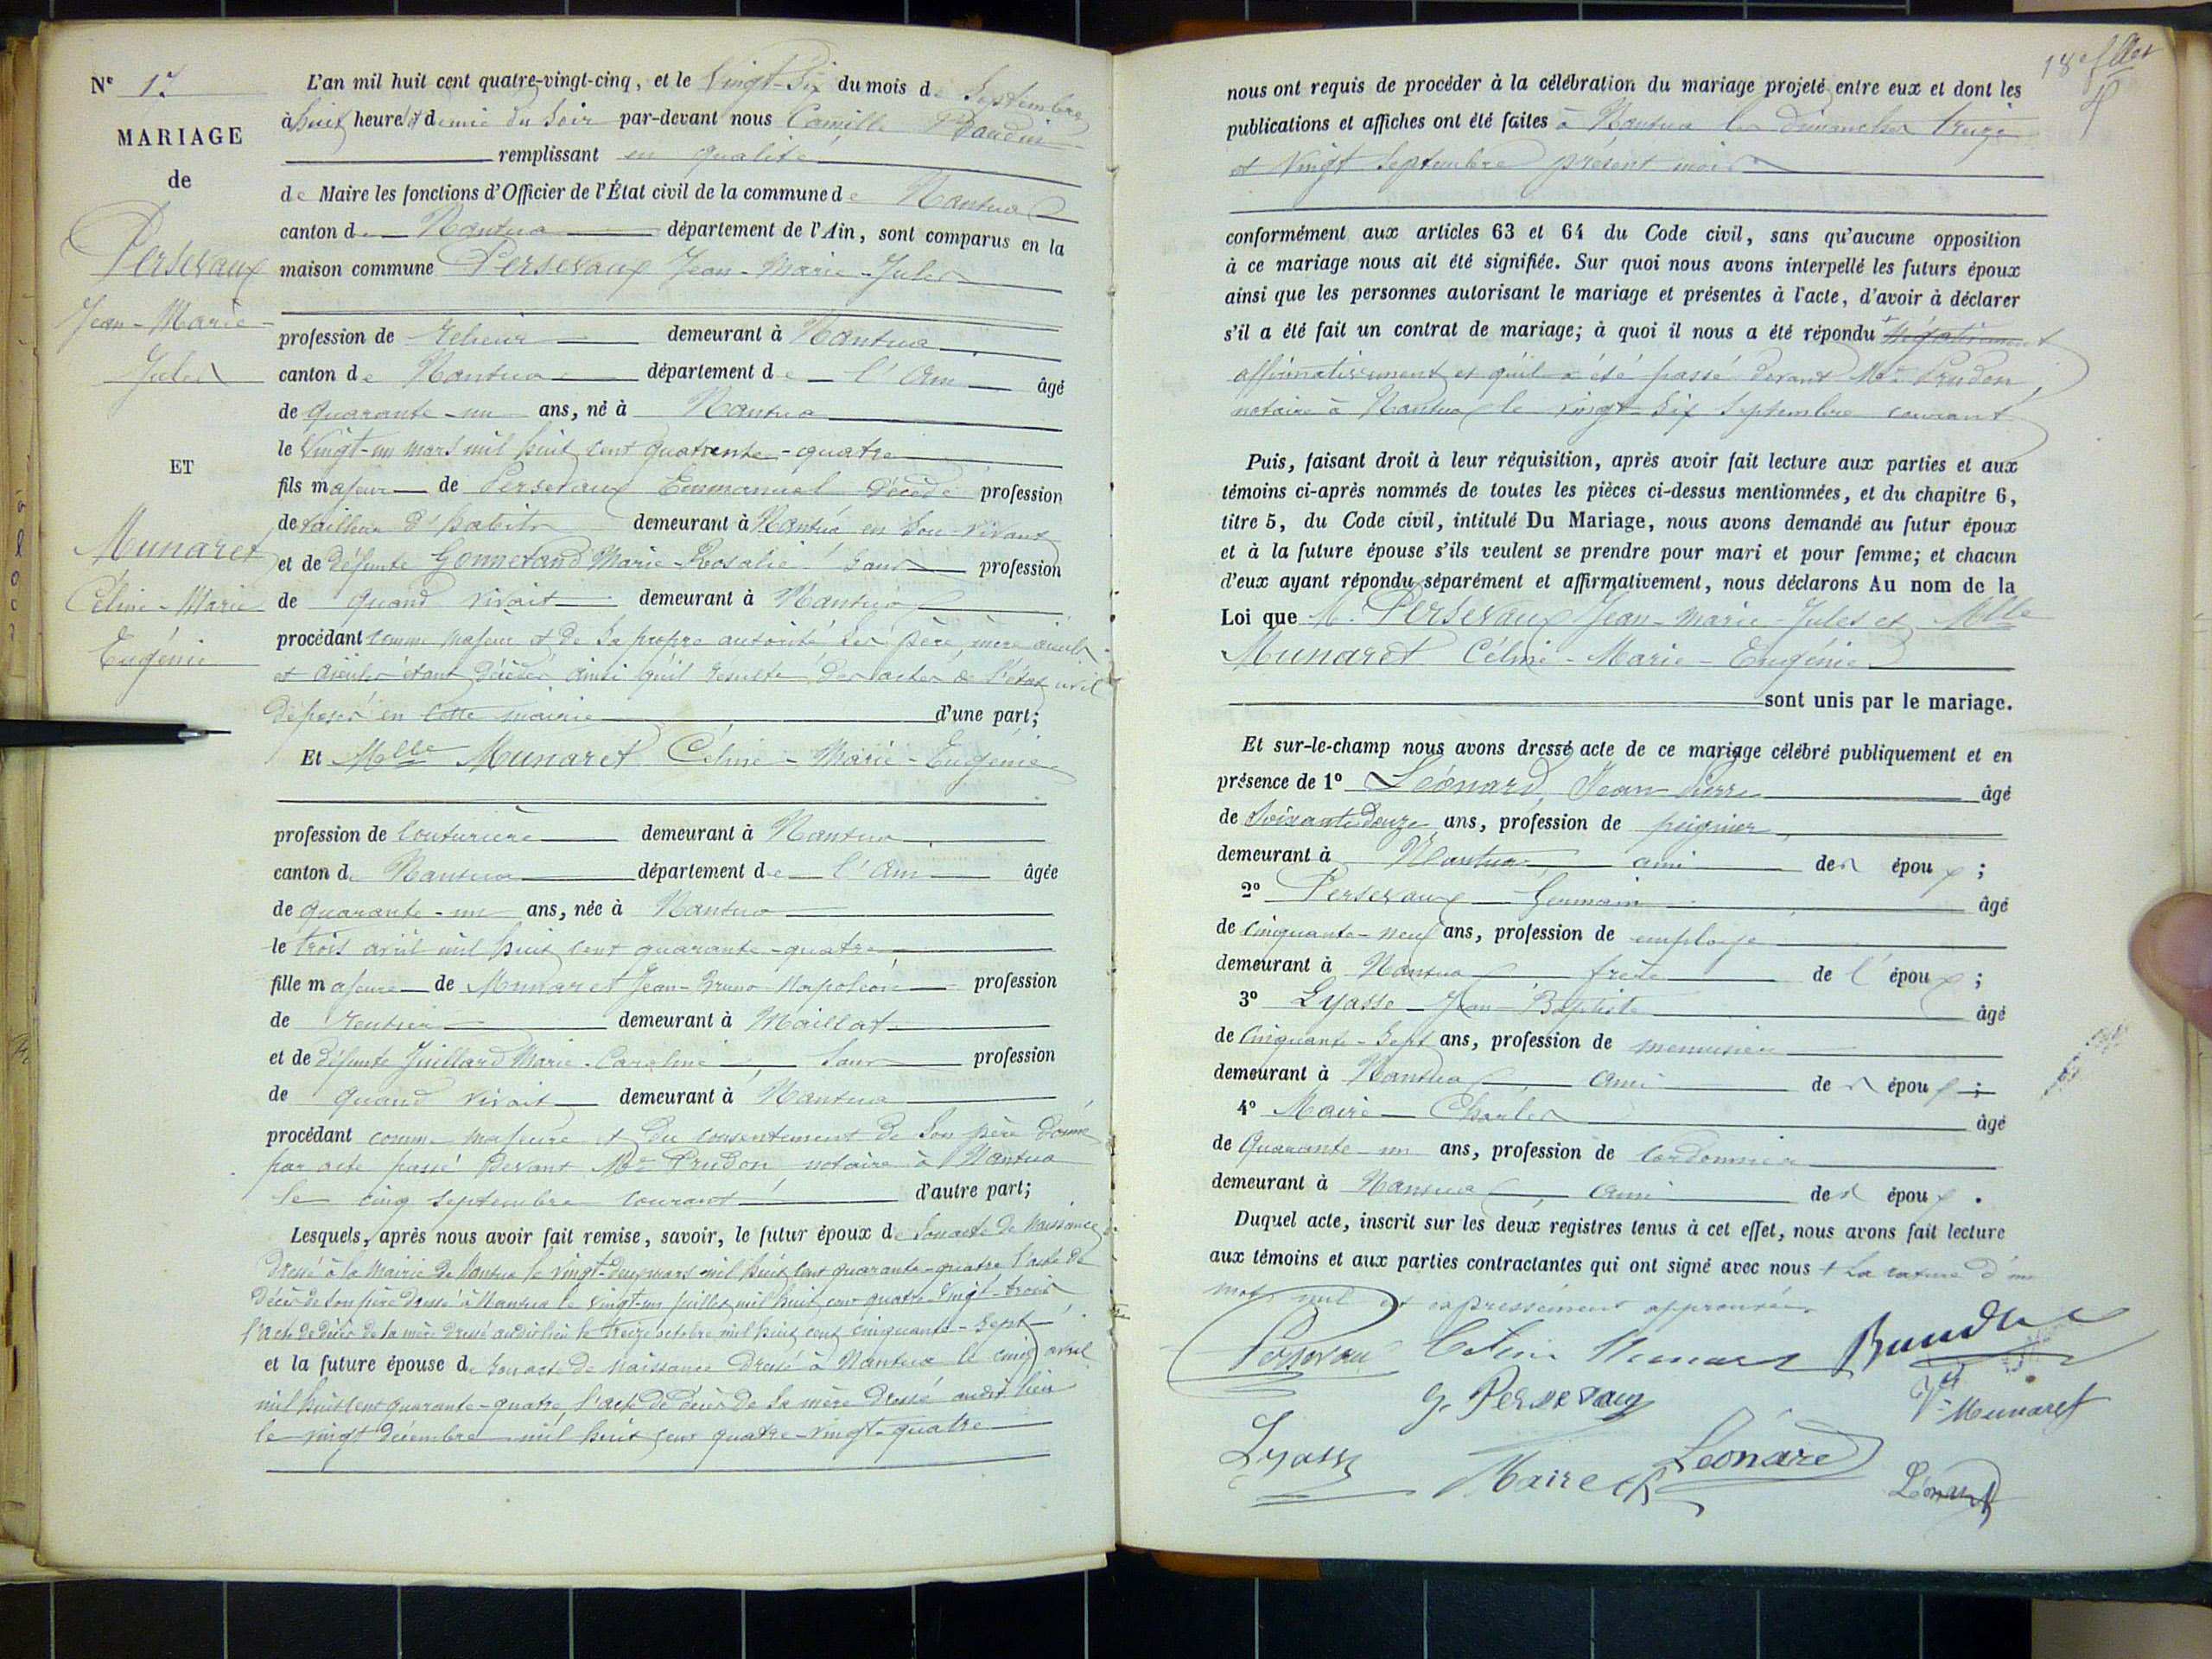 N° 17
MARIAGE
de
Persevaux
Jean-Marie-
Jules
ET
Munaret
Céline-Marie
Eugénie
L'an mil huit cent quatre-vingt-cinq, et le Vingt-Six du mois de Septembre
à huit heures et demie du Soir par-devant nous Camille Baudin
remplissant en qualité
de Maire les fonctions d'Officier de l'État civil de la commune de Nantua
canton de Nantua département de l'Ain, sont comparus en la
maison commune Persevaux Jean-Marie-Jules
profession de relieur demeurant à Nantua
canton de Nantua département de l'Ain âgé
de quarante-un ans, né à Nantua
le Vingt-un mars mil huit cent quarante-quatre
fils majeur de Persevaux Emmanuel décédé profession
de tailleur d'habits demeurant à Nantua en Son vivant
et de défunte Gonnevand Marie-Rosalie Sans profession
de quand vivait demeurant à Nantua
procédant comme majeur et de Sa propre autorité Ses père, mère aieuls
et aieules étant décédés ainsi qu'il résulte des actes de l'état civil
déposés en cette mairie d'une part;
Et Mlle Munaret Céline-Marie-Eugénie
profession de Couturière demeurant à Nantua
canton de Nantua département de l'Ain âgée
de quarante-un ans, née à Nantua
le trois avril mil huit cent quarante-quatre
fille majeure de Munaret Jean-Bruno-Napoléon profession
de rentier demeurant à Maillat
et de défunte Juillard Marie-Caroline Sans profession
de quand vivait demeurant à Nantua
procédant comme majeure et du consentement de Son père donné
par acte passé devant Me Prudon notaire à Nantua
le cinq septembre courant d'autre part;
Lesquels, après nous avoir fait remise, savoir, le futur époux de Son acte de Naissance
dressé à la Mairie de Nantua le vingt-deux mars mil huit cent quarante-quatre l'acte de
décès de Son père dressé à Nantua le vingt-un juillet mil huit cent quatre-vingt-trois
l'acte de décès de Sa mère dressé audit lieu le treize octobre mil huit cent cinquante-Sept
et la future épouse de Son acte de naissance dressé à Nantua le cinq avril
mil huit cent quarante-quatre l'acte de décès de Sa mère dressé audit lieu
le vingt décembre mil huit cent quatre-vingt-quatre
nous ont requis de procéder à la célébration du mariage projeté entre eux et dont les
publications et affiches ont été faites à Nantua les dimanches treize
et Vingt Septembre présent mois
conformément aux articles 63 et 64 du Code civil, sans qu'aucune opposition
à ce mariage nous ait été signifiée. Sur quoi nous avons interpellé les futurs époux
ainsi que les personnes autorisant le mariage et présentes à l'acte, d'avoir à déclarer
s'il a été fait un contrat de mariage; à quoi il nous a été répondu + négativement
affirmativement et qu'il a été passé devant Me Prudon,
notaire à Nantua le vingt Six Septembre courant
Puis, faisant droit à leur réquisition, après avoir fait lecture aux parties et aux
témoins ci-après nommés de toutes les pièces ci-dessus mentionnées, et du chapitre 6,
titre 5, du Code civil, intitulé Du Mariage, nous avons demandé au futur époux
et à la future épouse s'ils veulent se prendre pour mari et pour femme; et chacun
d'eux ayant répondu séparément et affirmativement, nous déclarons Au nom de la
Loi que M. Persevaux Jean-Marie-Jules et Mlle
Munaret Céline-Marie-Eugénie
sont unis par le mariage.
Et sur-le-champ nous avons dressé acte de ce mariage célébré publiquement et en
présence de 1° Léonard Jean-Pierre âgé
de Soixante douze ans, profession de peignier
demeurant à Nantua ami des époux;
2° Persevaux Germain âgé
de cinquante-neuf ans, profession de employé
demeurant à Nantua frère de l'époux;
3° Lyasse Jean-Baptiste âgé
de Cinquante-Sept ans, profession de menuisier
demeurant à Nantua ami des époux;
4° Maire Charles âgé
de Quarante-un ans, profession de Cordonnier
demeurant à Nantua ami des époux.
Duquel acte, inscrit sur les deux registres tenus à cet effet, nous avons fait lecture
aux témoins et aux parties contractantes qui ont signé avec nous + La rature d'un
mot nul est expressément approuvée.
Persevaux Céline Munaret Baudin
G. Persevaux Munaret
Lyasse Maire Ch Léonard Léonard